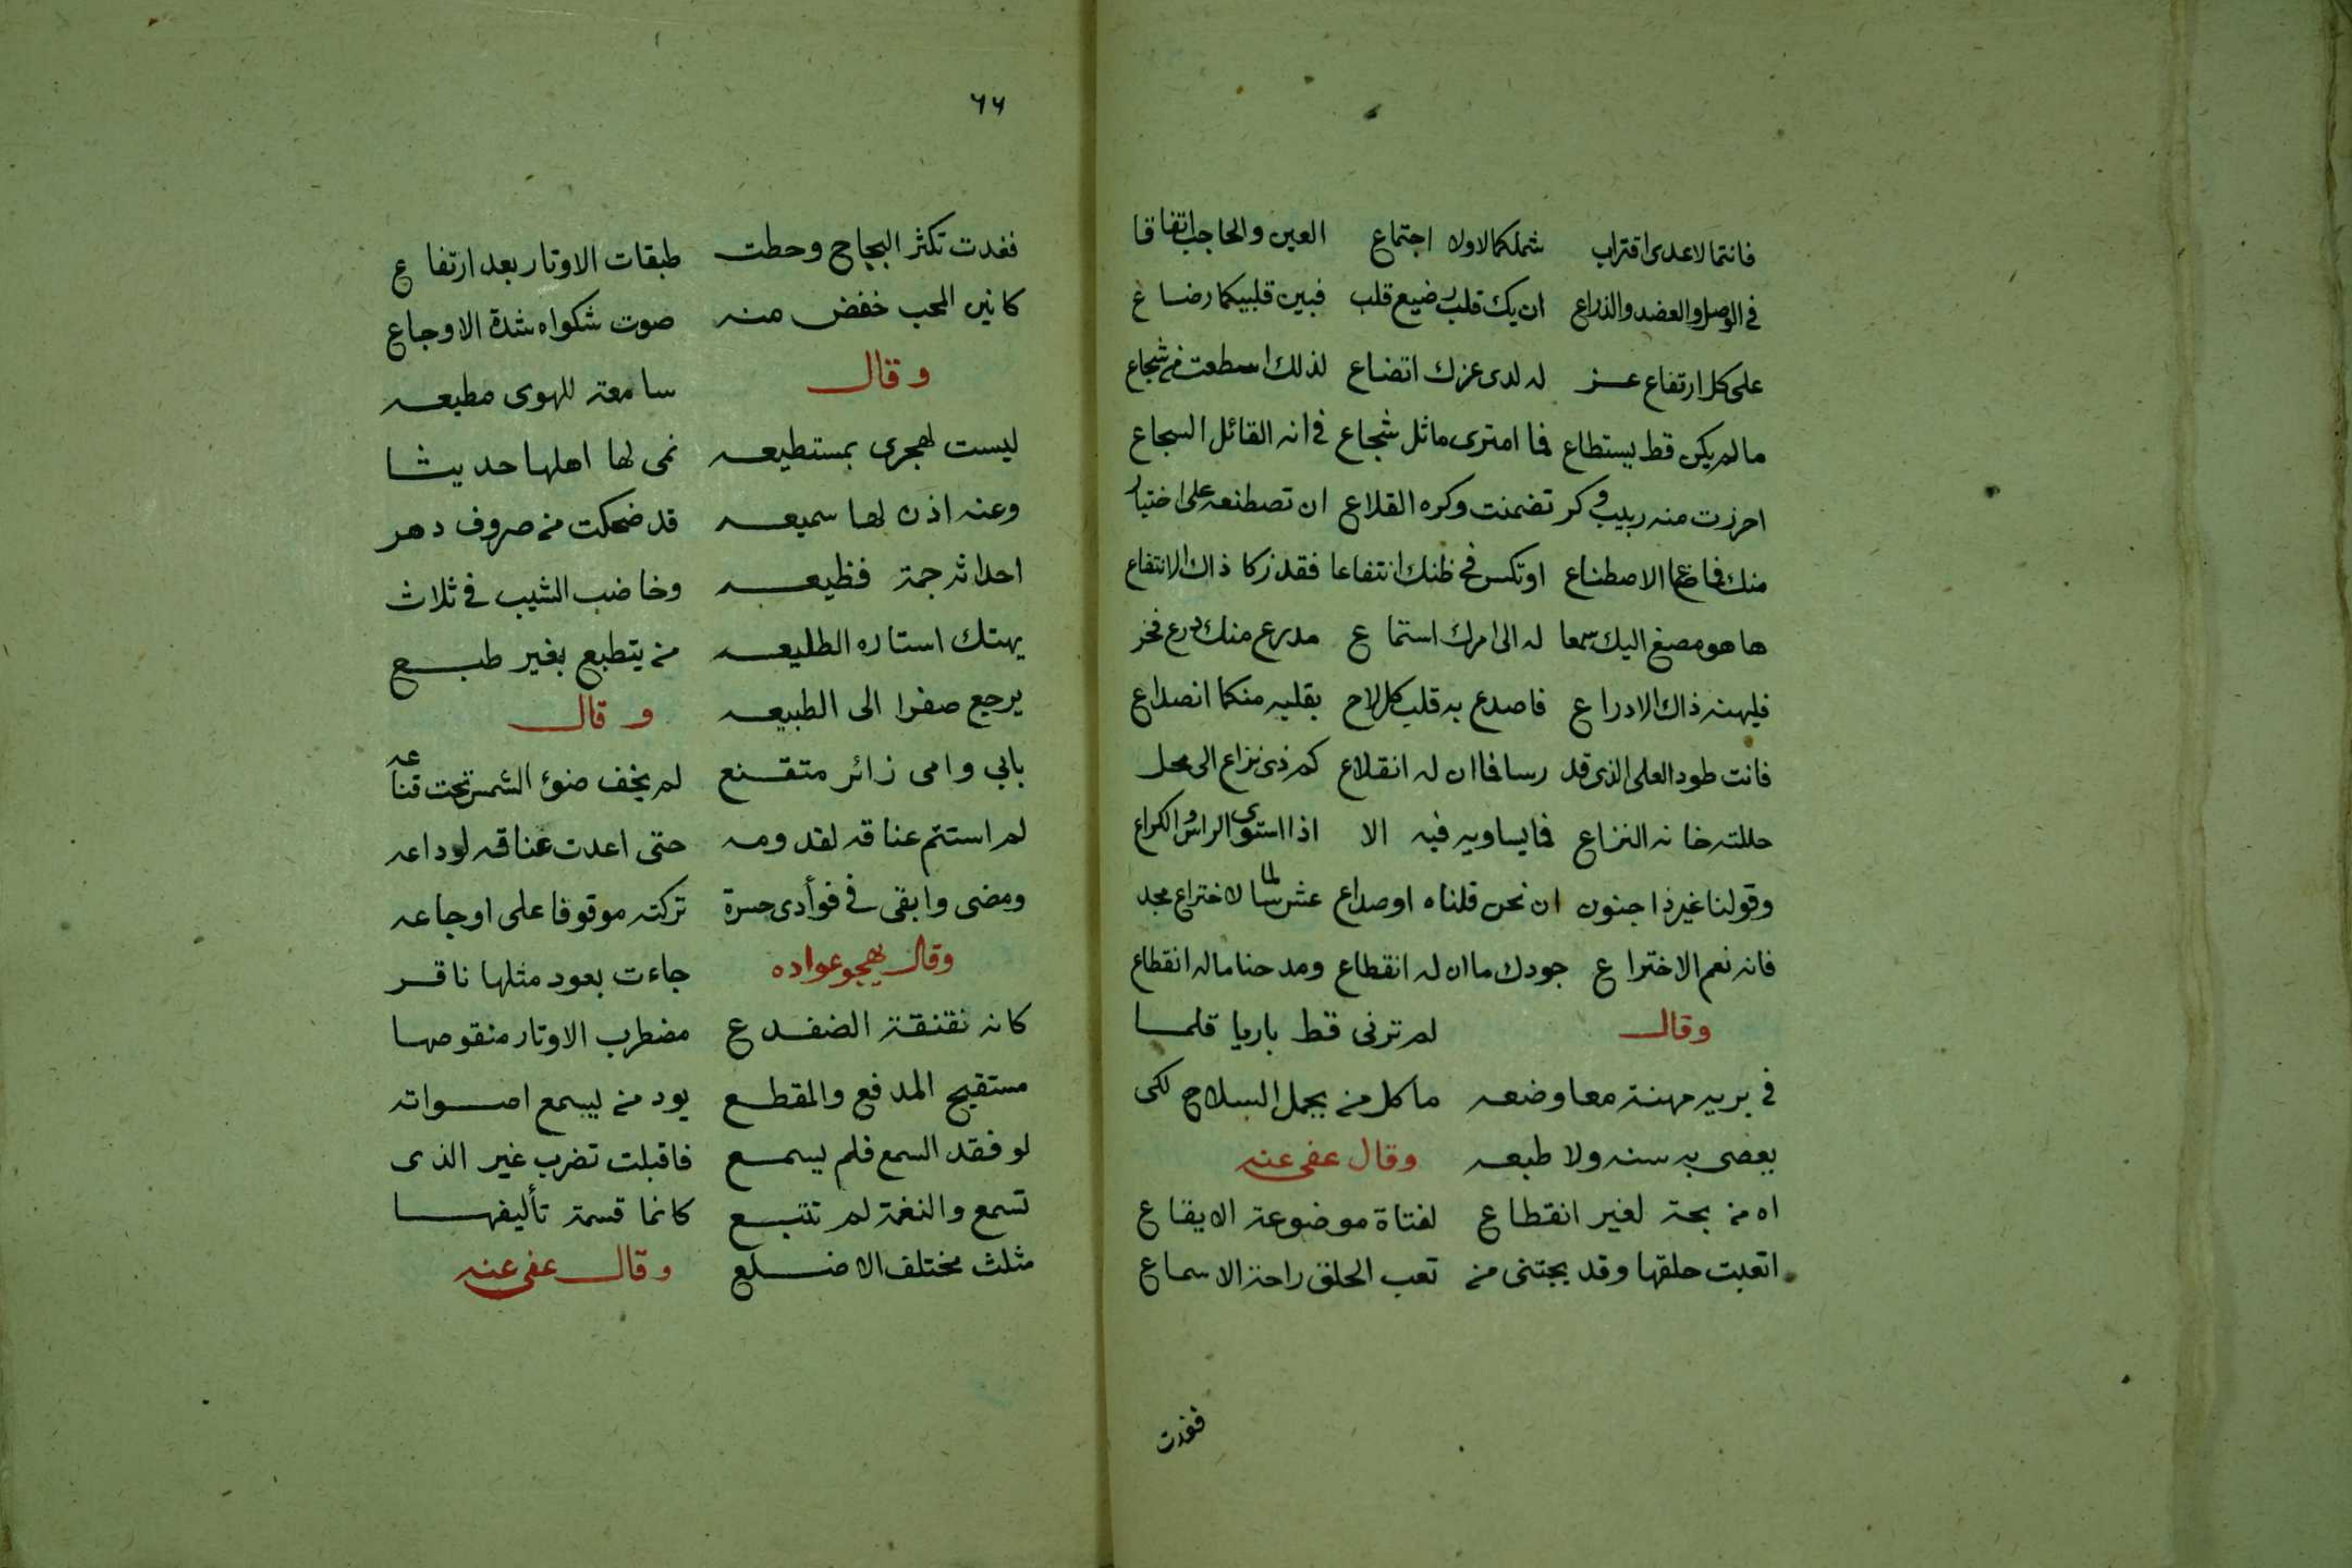 فانتما لاعدى اقتراب شملكما لاولا اجتماع العين والحاجب اتفاقا
فى الوصل والعضد والذراع ان يك قلب رضيع قلب فبين قلبيكما رضاع
على كل ارتفاع عز له لدى عزك اتضاع لذلك اسطعت من شجاع
ما لم يكن قط يستطاع فما امترى ماثل شجاع فى انه القائل السجاع
احرزت منه ربيب فكر تضمنت وكره القلاع ان تصطنعه على اختيار
منك فما ضاع الاصطناع او تكس فى ظنك انتفاعا فقد زكا ذاك الانتفاع
ها هو مصغ اليك سمعا له الى امرك استماع مدرع منك درع فخر
فليهنه ذاك الادراع فاصدع به قلب كل لاح بقلبه منكما انصداع
فانت طود العلى الذى قد رسا فما ان له انقلاع كم ذى نزاع الى محل
حللته خانه النزاع فما يساويه فيه الا اذا استوى الراس والكراع
وقولنا غير ذا جنون ان نحن قلناه او صداع عش سالما لاختراع مجد
فانه نعم الاختراع جودك ما ان له انقطاع ومدحنا ماله انقطاع
وقال لم ترنى قط باريا قلما
فى بريه مهنة معا وضعه ما كل من يحمل السلاح لكى
يعصى به سنه ولا طبعه وقال عفى عنه
اه من بحة لغير انقطاع لفتاة موضوعة الايقاع
اتعبت حلقها وقد يجتنى من تعب الحلق راحة الاسماع
فغدت
٦٦
فغدت تكثر البجاح وحطت طبقات الاوتار بعد ارتفاع
كانين المحب خفض منه صوت شكواه شدة الاوجاع
وقال سامعة للهوى مطيعه
ليست لهجرى بمستطيعه نمى لها اهلها حديثا
وعنه اذن لها سميعه قد ضحكت من صروف دهر
احداثه جمة فظيعه وخاضب الشيب فى ثلاث
يهتك استاره الطليعه من يتطبع بغير طبع
يرجع صفرا الى الطبيعه وقال
بابي وامى زائر متقنع لم يخف ضوء الشمس تحت قناعه
لم استتم عناقه لقدومه حتى اعدت عناقه لوداعه
ومضى وابقى فى فوأدى حسرة تركته موقوفا على اوجاعه
وقال يهجو عواده جاءت بعود مثلها ناقر
كانه نقنقة الضفدع مضطرب الاوتار منقوصها
مستقبح المدفع والمقطع يود من يسمع اصواته
لو فقد السمع فلم يسمع فاقبلت تضرب غير الذى
تسمع والنغمة لم تتبع كانما قسمة تأليفها
مثلث مختلف الاضلع وقال عفى عنه